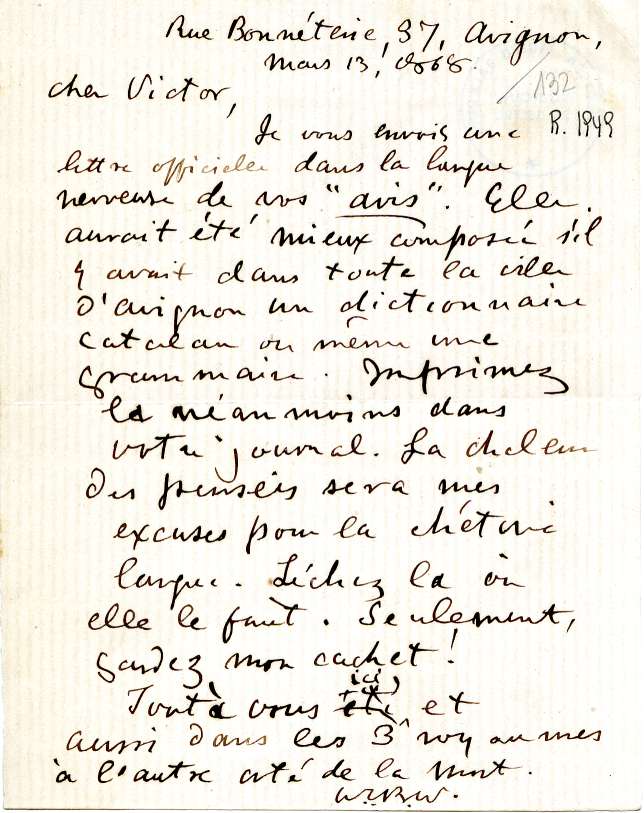 Rue Bonnéterie, 37, Avignon,
Mars 13, 1868.
132
R. 1949
cher Victor,
Je vous envois une
lettre officielle dans la langue
nerveuse de vos "avis". Elle
aurait été mieux composée s'il
y avait dans toute la ville
d'avignon un dictionnaire
catalan ou même une
grammaire. Imprimez
la néanmoins dans
votre journal. La chaleur
des pensées sera mes
excuses pour la
langue. Léchez la où
elle le faut. Seulement,
gardez mon cachet!
ici,
Tout à vous et
aussi dans les 3 royaumes
à l'autre coté de la mort.
W.C.B.W.